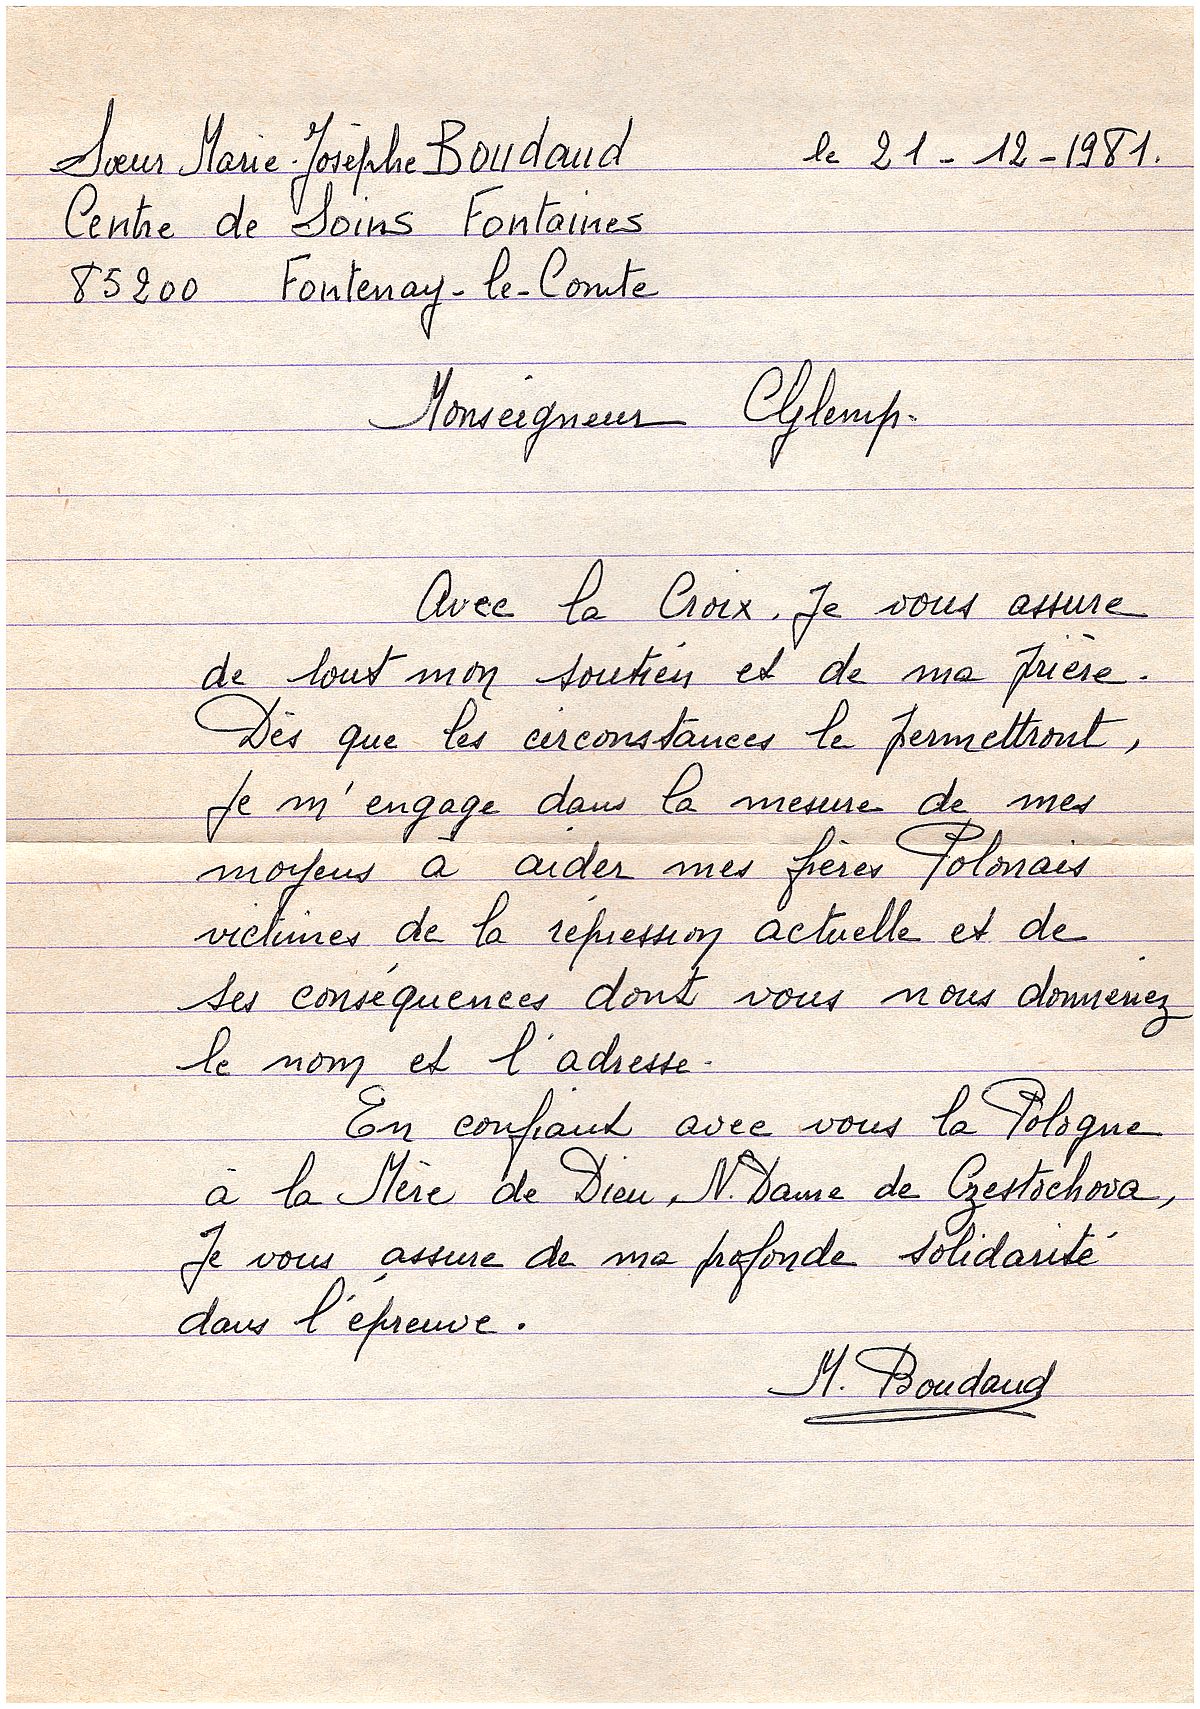 Sœur Marie-Josèphe Boudaud le 21-12-1981.
Centre de Soins Fontaines
85200 Fontenay-le-Comte
Monseigneur Glemp.
Avec la Croix. Je vous assure
de tout mon soutien et de ma prière.
Dès que les circonstances le permettront,
je m'engage dans la mesure de mes
moyens à aider mes frères Polonais
victimes de la répression actuelle et de
ses conséquences dont vous nous donneriez
le nom et l'adresse.
En confiant avec vous la Pologne
à la Mère de Dieu, N. Dame de Czestochova,
Je vous assure de ma profonde solidarité
dans l'épreuve.
M. Boudaud